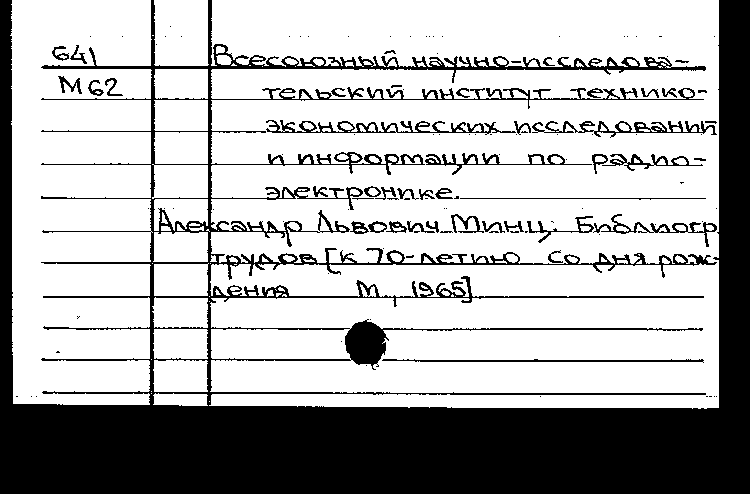 641 Всесоюзный научно-исследова-
М62 тельский институт технико-
экономических исследований
и информации по радио-
электронике.
Александр Львович Минц: Библиогр
трудов [к 70-летию со дня рож-
дения М., 1965]